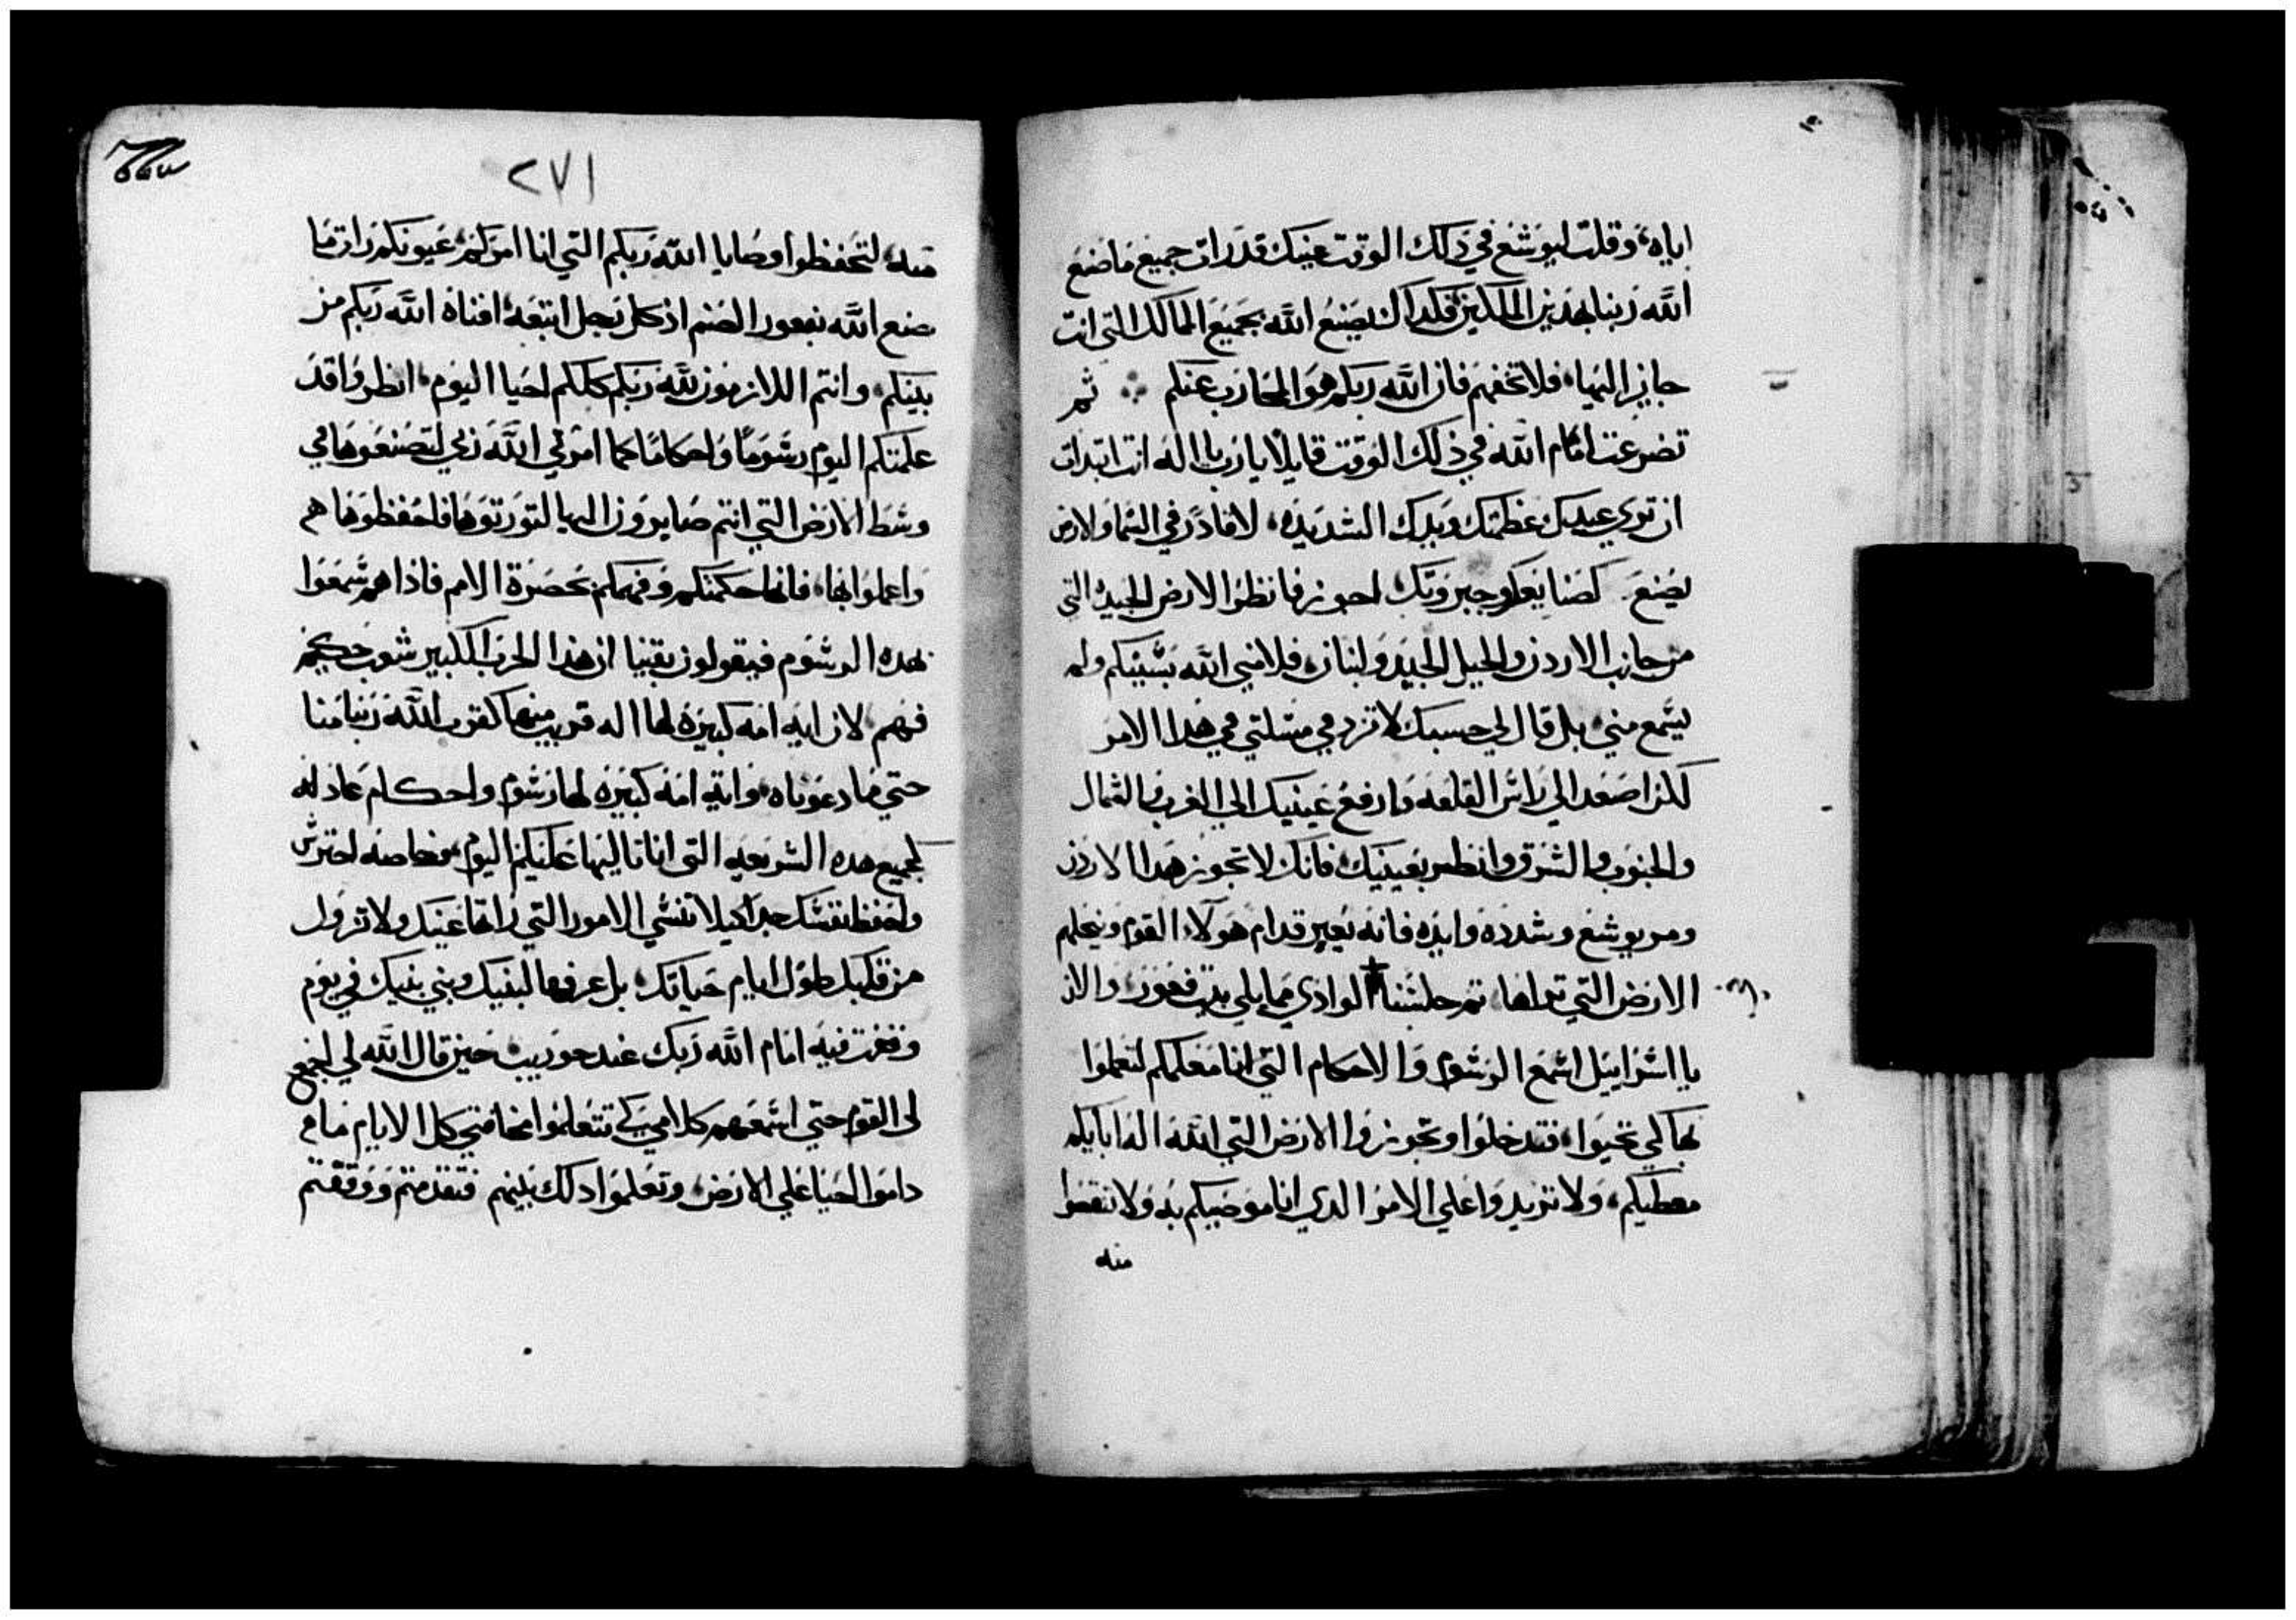 اياه، وقلت ليوشع في ذلك الوقت عينيك قد رات جميع ما صنع
الله ربنا بهذين الملكين فكذلك يصنع الله بجميع الممالك التي انت
جايز اليها، فلا تخفهم فان الله ربكم هو المحارب عنكم ∴ ثم
تضرعت امام الله في ذلك الوقت قايلا يا رب يا اله انت ابتدات
ان تري عبدك عظمتك ويدك الشديده، لا قادر في السما والارض
يصنع كصنايعك وجبروتك احوز فانظر الارض الجيده التي
من جانب الاردن والجبل الجيد ولبنان، فلامني الله بسببكم ولم
يسمع مني، بل قال لي حسبك لا تزد في مسلتي في هدا الامر
لكن اصعد الي راس القلعه وارفع عينيك الي الغرب والشمال
والجنوب والشرق وانظر بعينيك فانك لا تجوز هدا الاردن
ومر يوشع وشدده وايده فانه يعبر قدام هولاء القوم وينحلهم
الارض التي تراها، ثم جلسنا الوادي مما يلي بيت فغور، والان
يا اسراييل اسمع الرسوم والاحكام التي انا معلمكم لتعملوا
بها لكي تحيوا، فتدخلوا وتجوزوا الارض التي الله اله ابايكم
معطيكم، ولا تزيدوا علي الامر الدي انا موصيكم به ولا تنقصوا
منه
٢٧١
منه، لتحفظوا وصايا الله ربكم التي انا امركم، عيونكم رات ما
صنع الله بفعور الصنم اذ كل رجل اتبعه، افناه الله ربكم من
بينكم، وانتم اللازمون لله ربكم كلكم احيا اليوم، انظروا قد
علمتكم اليوم رسوما واحكاما كما امرني الله ربي لتصنعوها في
وسط الارض التي انتم صايرون اليها لتورثوها فاحفظوها هم
واعملوا بها، فانها حكمتكم وفهمكم بحضرة الامم فاذا هم سمعوا
بهده الرسوم فيقولون يقينا ان هذا الحزب الكبير شعب حكيم
فهم، لان ايه امه كبيره لها اله قريب منها كقرب الله ربنا منا
حتي ما دعوناه، واية امه كبيره لها رسوم واحكام عادله
كجميع هده الشريعه التي انا تاليها عليكم اليوم، وخاصه احترس
واحفظ نفسك جدا كيلا تنسي الامور التي راتها عينيك ولا تزول
من قلبك طول ايام حياتك، بل عرفها لبنيك وبني بنيك في يوم
وقفت فيه امام الله ربك عند حوريب، حين قال الله لي اجمع
لي القوم حتي اسمعهم كلامي كي تتعلموا مخافتي كل الايام ما
داموا احيا علي الارض، وتعلموا دلك بنيهم فتقدمتم ووقفتم